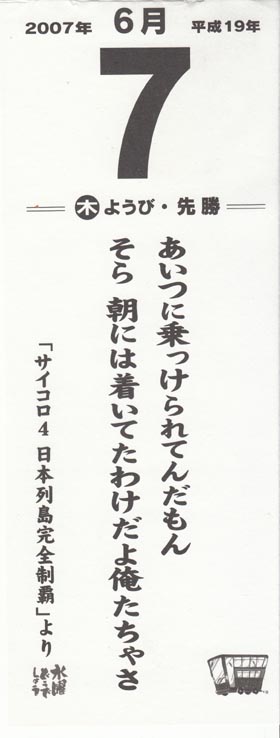 2007年 6月 平成19年
7
木ようび・先勝
あいつに乗っけられてんだもん
そら 朝には着いてたわけだよ俺たちゃさ
「サイコロ4 日本列島完全制覇」より
水曜
どうで
しょう